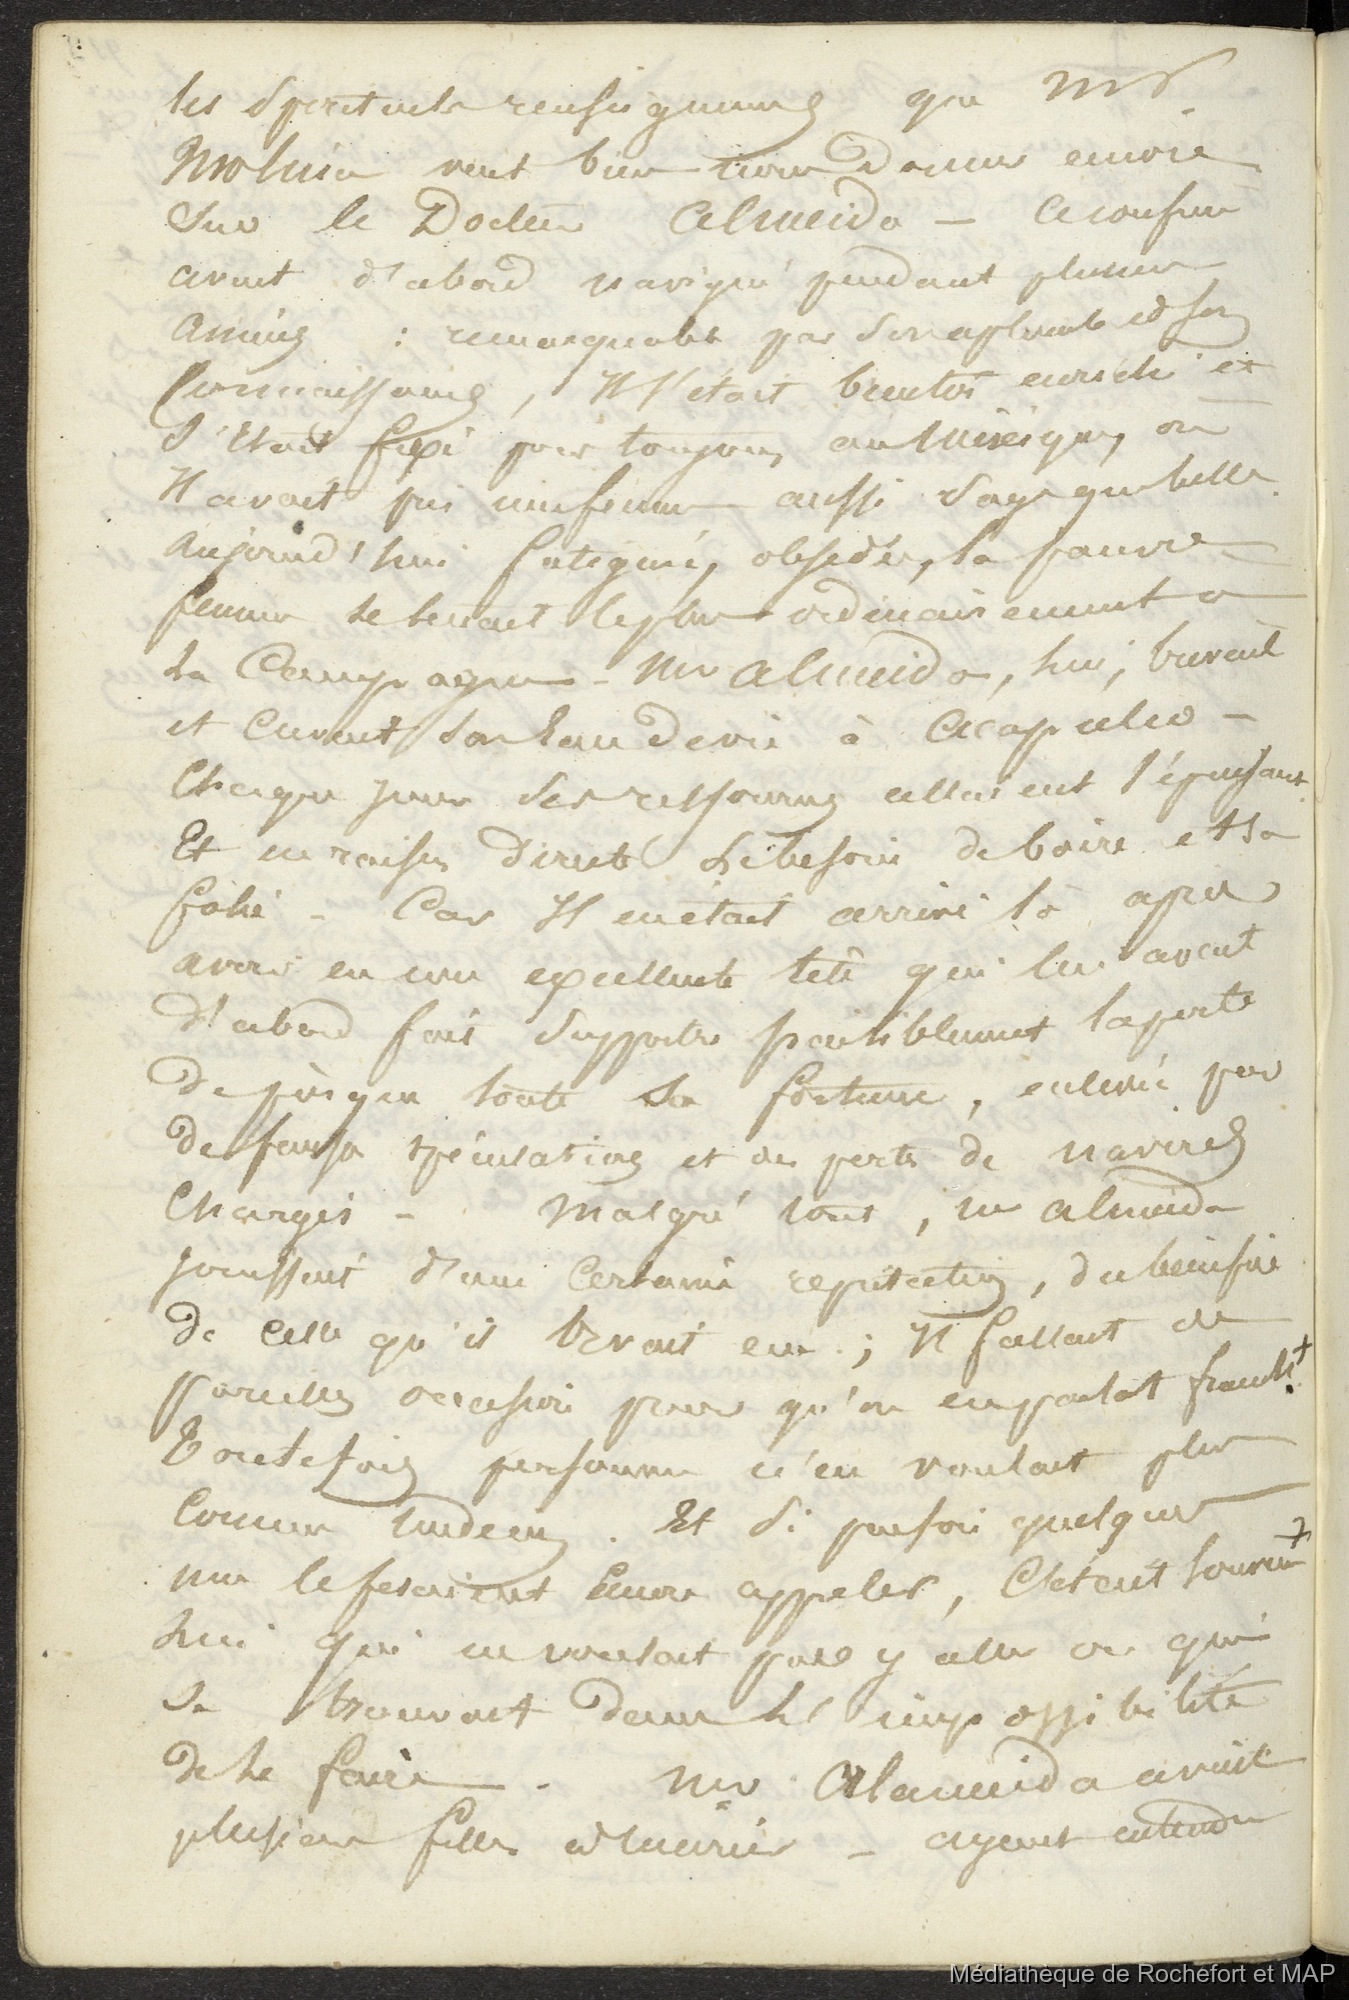 les spirituels renseignements que Mr
Molinia veut bien nous donner encore
Sur le Docteur Almeida – Ce confrère
avait d'abord navigué pendant plusieurs
années : remarquable par son aplomb et ses
Connaissances, Il s'était bientôt enrichi et
s'était fixé pour toujours au Mexique, où
Il avait pris une femme aussi sage que belle.
Aujourd'hui fatiguée, obsédée, la pauvre
femme se tenait le plus ordinairement à
la Campagne – Mr Almeida, lui, buvait
et cuvait son Eau de vie à Acapulco –
Chaque jour ses ressources allaient s'épuisant
Et en raison directe le besoin de boire et sa
folie – Car Il en était arrivé là après
avoir eu une excellente tête qui lui avait
d'abord fait supporter paisiblement la perte
de presque toute sa fortune, enlevée par
de fausses spéculations et des pertes de navires
Chargés – Malgré tout, Mr Almeida
jouissait d'une certaine réputation, du bénéfice
de celle qu'il avait eue ; Il fallait de
pareilles occasions pour qu'on en parlât franchet.
Toutefois personne n'en voulait plus
Comme médecin. Et si parfois quelques
uns le fesaient encore appeler, C'était souvent
lui qui ne voulait pas y aller ou qui
se trouvait dans l'impossibilité
de le faire – Mr Alameida avait
plusieurs filles à marier – ayant entendu
Médiathèque de Rochefort et MAP